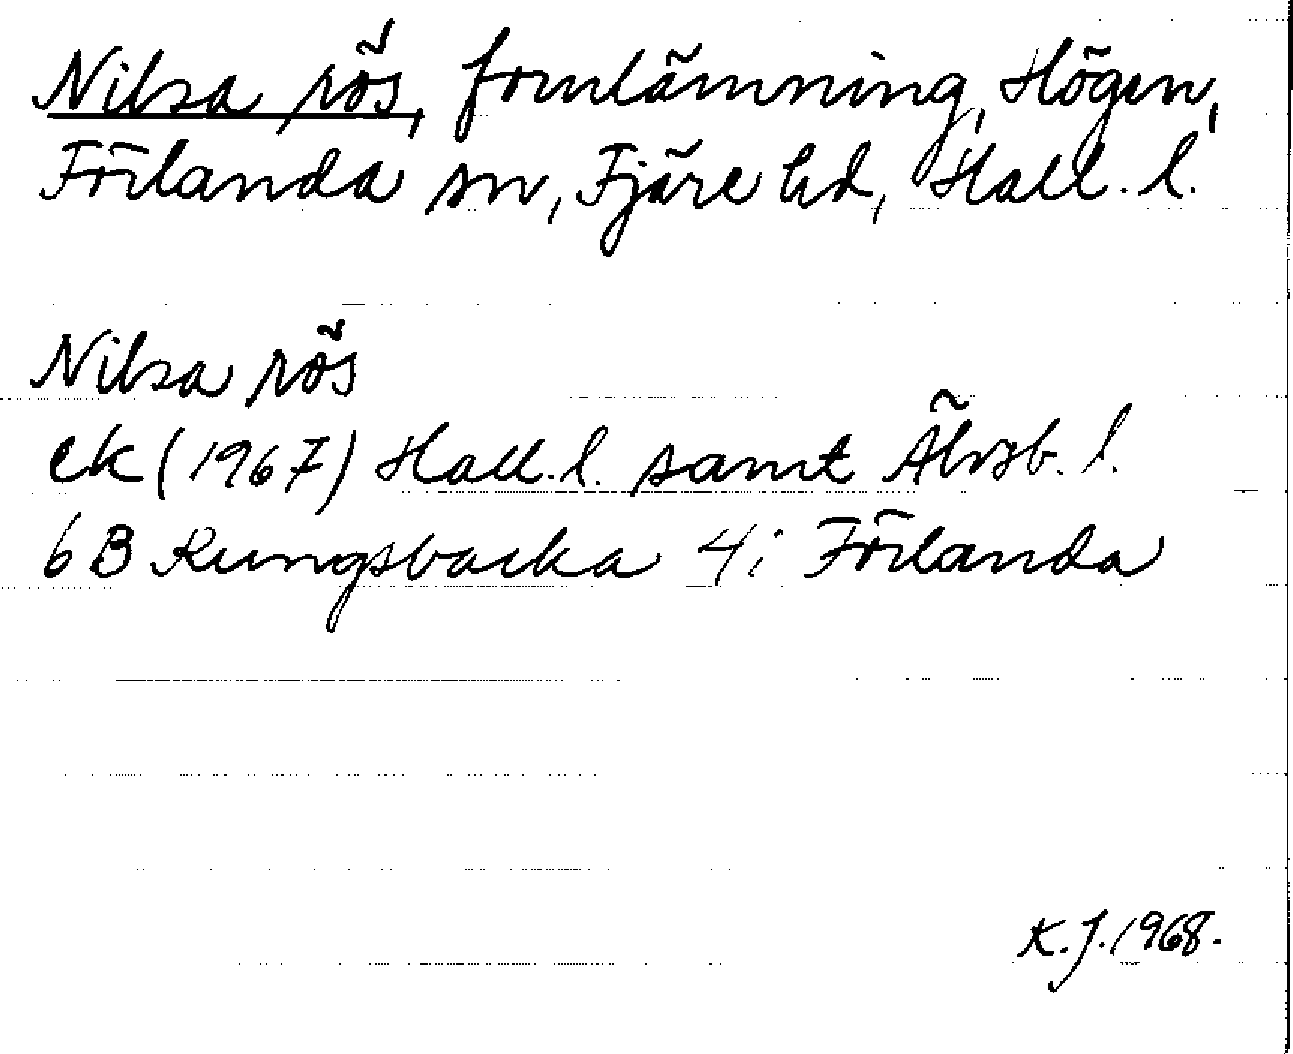 Nilsa rös, fornlämning, Högen,
Förlanda sn, Fjäre hd, Hall. l.
Nilsa rös
ek (1967) Hall. l. samt Älvsb. l.
6 B Kungsbacka 4i Förlanda
K. J. 1968.